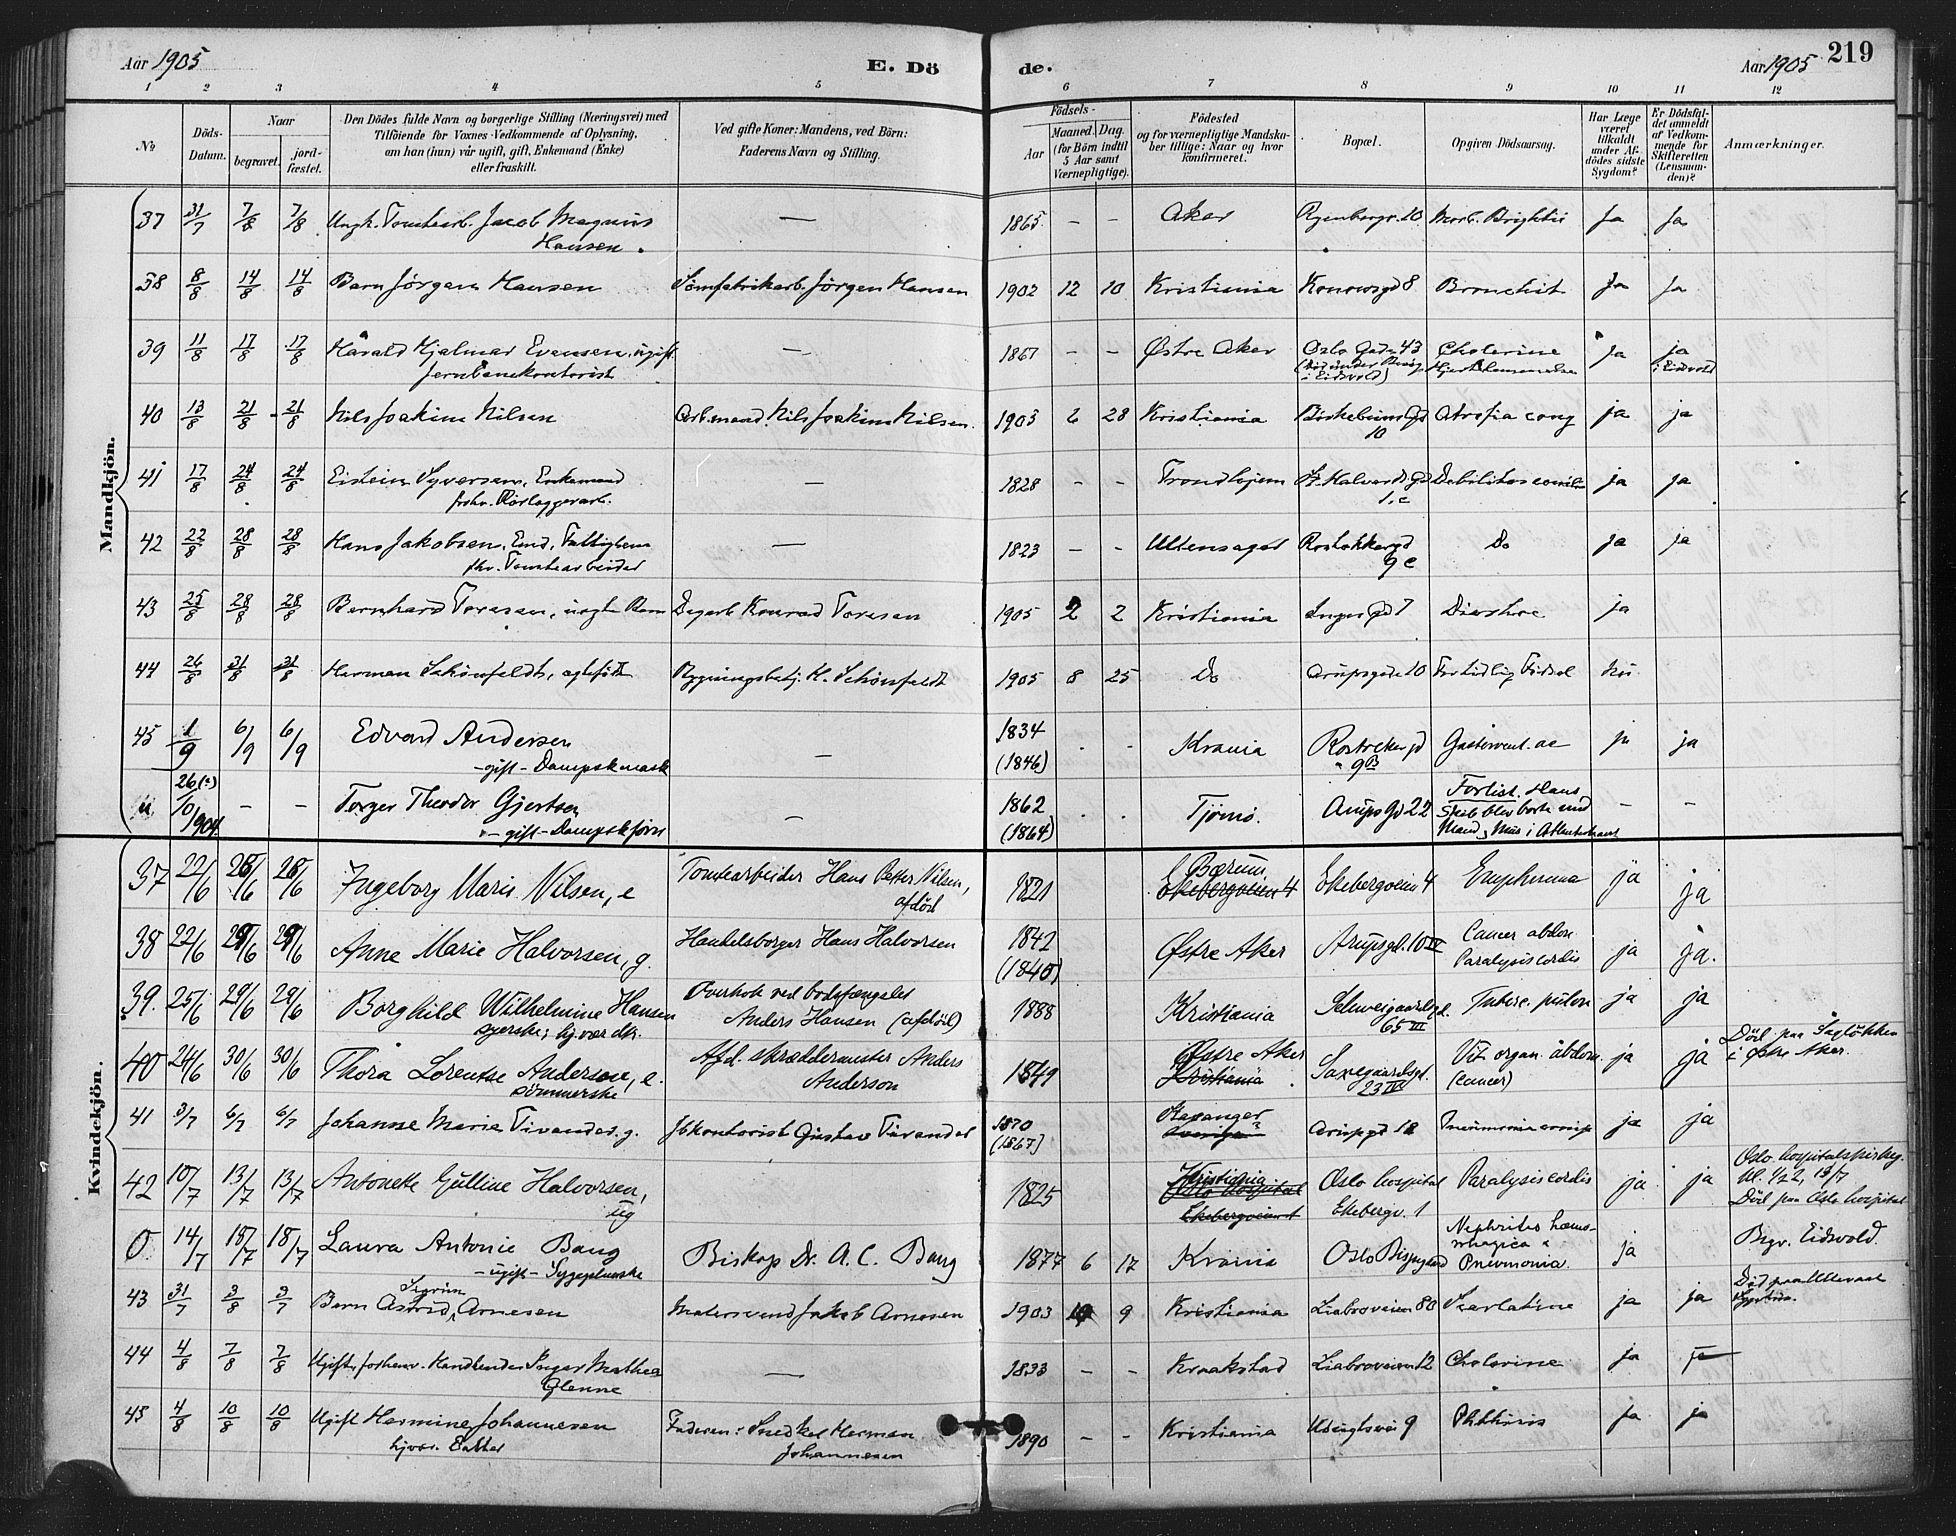 Aar 1905 E. Dö
de. Aar 1905 219
1 2 3 4 5
6 7 8 9 10 11 12
No
Döds-Datum.
Naar
begravet.
jordfæstet.
Den Dödes fulde Navn og borgerlige Stilling (Næringsvei) med
Tilföiende for Voxnes Vedkommende af Oplysning,
om han (hun) var ugift, gift, Enkemand (Enke)
eller fraskilt.
Ved gifte Koner: Mandens, ved Börn:
Faderens Navn og Stilling.
Födsels-
Aar
Maaned. Dag.
(for Börn indtil
5 Aar samt
Værnepligtige).
Födested
og for værnepligtige Mandskaber tillige: Naar og hvor
konfirmeret.
Bopæl.
Opgiven Dödsaarsag.
Har Læge
været
tilkaldt
under Afdödes sidste
Sygdom?
Er Dödsfaldet anmeldt
af Vedkommende for
Skifteretten
(Lensmanden)?
Anmærkninger.
Mandkjön.
37 31/7 7/8 7/8 Ungk. Tomtearb. Jacob Magnus Hansen. — 1865 – – Aker Ryenbergv. 10 Morb. Brightii Ja Ja
38 8/8 14/8 14/8 Barn Jörgen Hansen Sömfabrikarb. Jörgen Hansen 1902 12 10 Kristiania Konowsgd 8 Bronchit Ja Ja
39 11/8 17/8 17/8 Harald Hjalmar Evensen, ugift Jernbanekontorist — 1867 – – Østre Aker Oslo Gade 43 (död under Besøg i Eidsvold) Cholerine Ja ja i Eidsvold
40 13/8 21/8 21/8 Nils Joakim Nilsen Arb.mand Nils Joakim Nilsen 1903 2 28 Kristiania Birkebeinergd 10 Atrofia cong ja ja
41 17/8 24/8 24/8 Eistein Syversen, Enkemand forhv. Rörlæggerarb. — 1828 – – Trondhjem St. Halvards Gd 1.c Debilitas senilis ja ja
42 22/8 28/8 28/8 Hans Jakobsen, Emd, Fattiglem fhv. Tomtearbeider — 1823 – – Ullensager Rostokkergd 9 c Do ja ja
43 25/8 28/8 28/8 Bernhard Toresen, uægte Barn Dagarb Konrad Toresen 1905 2 2 Kristiania Ingers Gd 7 Diarrhoe ja
44 26/8 31/8 31/8 Herman Schönfeldt, ægtefödt Bygningsbetj. H. Schönfeldt 1905 8 25 Do Arupsgade 10 For tidlig Födsel Nei
45 1/9 6/9 6/9 Edvard Andersen -gift- Dampskmask — 1834 (1846) . . Krania Rostocker gd 9B Gastroent. ac ja ja
u 26(?)/10 1904 – – Torger Theodor Gjertsen -gift- Dampskförer – 1862 (1864) . . Tjömö. Arups Gd 22 Forlist. Hans Skib blev borte med Mand og Mus i Atlanterhavet – –
Kvindekjön.
37 22/6 28/6 28/6 Ingeborg Marie Nilsen, e Tomtearbeider Hans Petter Nilsen, afdöd 1821 Bærum Ekebergveien 4 Ekebergveien 4 Emphysema ja ja
38 22/6 29/6 29/6 Anne Marie Halvorsen, g. Handelsborger Hans Halvorsen 1842 (1840) Østre Aker Arupsgd. 10 IV Cancer abdom Paralysis cordis ja ja.
39. 25/6 29/6 29/6 Borghild Wilhelmine Hansen syerske; hj.vær. dtr. Overkok ved bodsfængslet Anders Hansen (afdöd) 1888 Kristiania Schweigaardsgd. 65 III Tuberc. pulm ja ja
40 24/6 30/6 30/6 Thora Lorentse Andersen, e. sömmerske Afd. skræddermester Anders Anderson 1849 Østre Aker Kristiania Saxegaardsgt. 23 IV Vit. organ. abdom. (cancer) ja ja Död paa Sagløkken i Østre Aker.
41 3/7 6/7 6/7 Johanne Marie Tivander. g. Jbkontorist Gustav Tivander 1870 (1867) Stavanger Sverige Arupgd 18 Pneumonia croup ja ja
42 10/7 13/7 13/7 Antonette Gulline Halvorsen, ug 1825 Kristiania Oslo hospital Ekebergveien 1 Oslo hospital Ekebergv. 1 Paralysis cordis ja ja Oslo hospitalskirkeg. Kl. 1/2 2, 13/7 Död paa Oslo hospital
0 14/7 18/7 18/7 Laura Antonie Bang -ugift- Sygepleierske Biskop Dr. A. C. Bang 1877 6 17 Krania Oslo Bispegaard Nephritis hæmorrhagica Pneumonia. ja Bgr. Eidsvold.
43 31/7 3/8 3/7 Barn Astrid Sigrun Arnesen Malersvend Jakob Arnesen 1903 10 9 Kristiania Liabroveien 80 Scarlatine ja ja Död paa Ullevaal Sygehus.
44 4/8 7/8 7/8 Ugift, forhenv. Handlende Inger Mathea Glenne — 1833 – – Kraakstad Liabroveien 12 Cholerine ja
45 4/8 10/8 10/8 Ugift Hermine Johannesen hjvær. Datter Faderen: Snedker Herman Johannesen 1890 – – Kristiania Udsigtsvei 9 Phthisis ja ja